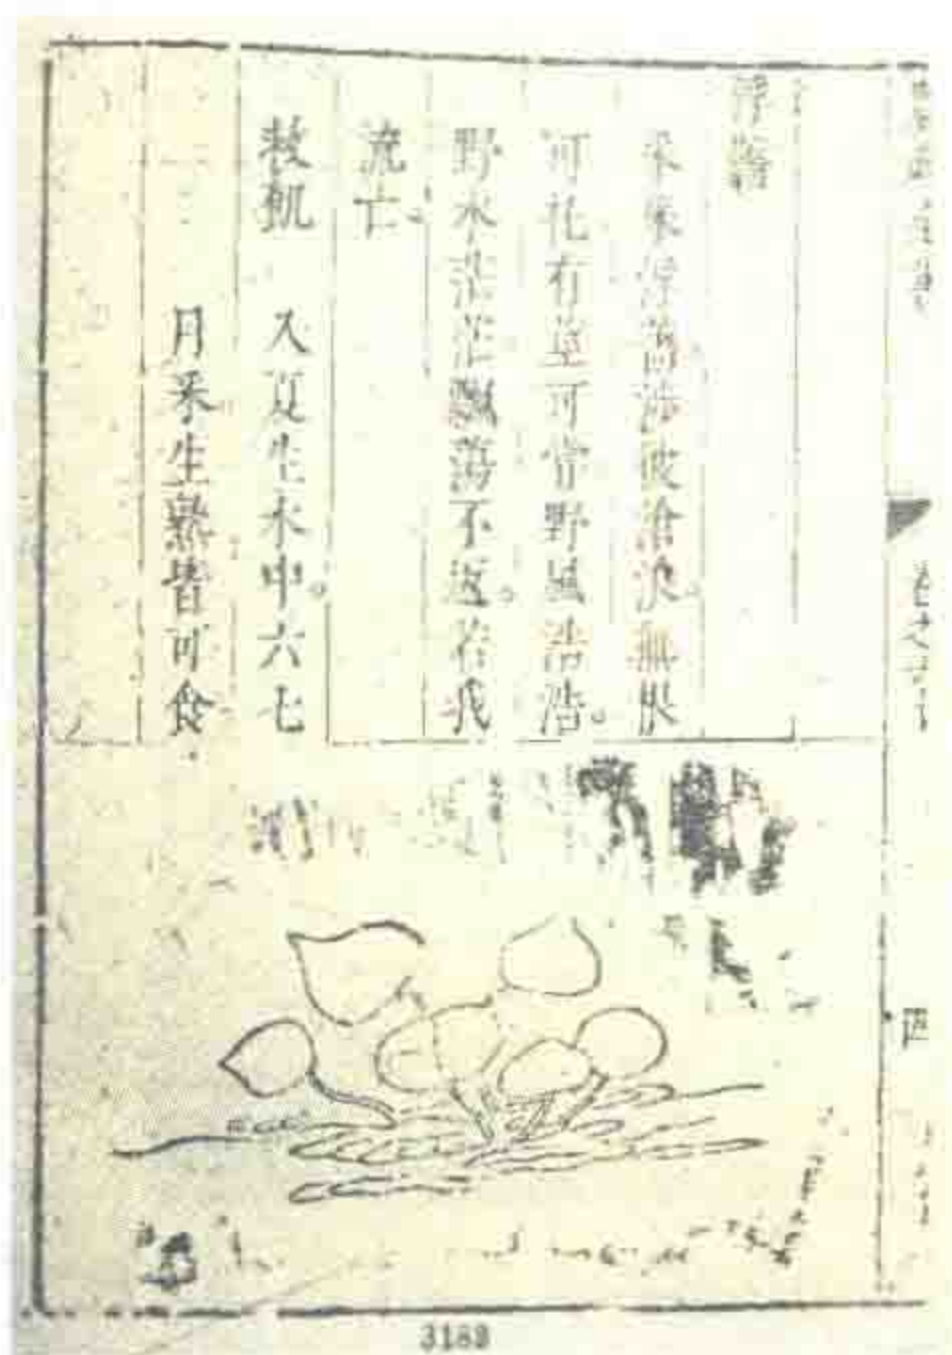 浮薔
采采浮薔涉彼滄浪。無根
可托有莖可嘗野風浩浩。
野水茫茫飄蕩不返。若我
流亡。
救飢　入夏生水中。六七
月采生熟皆可食